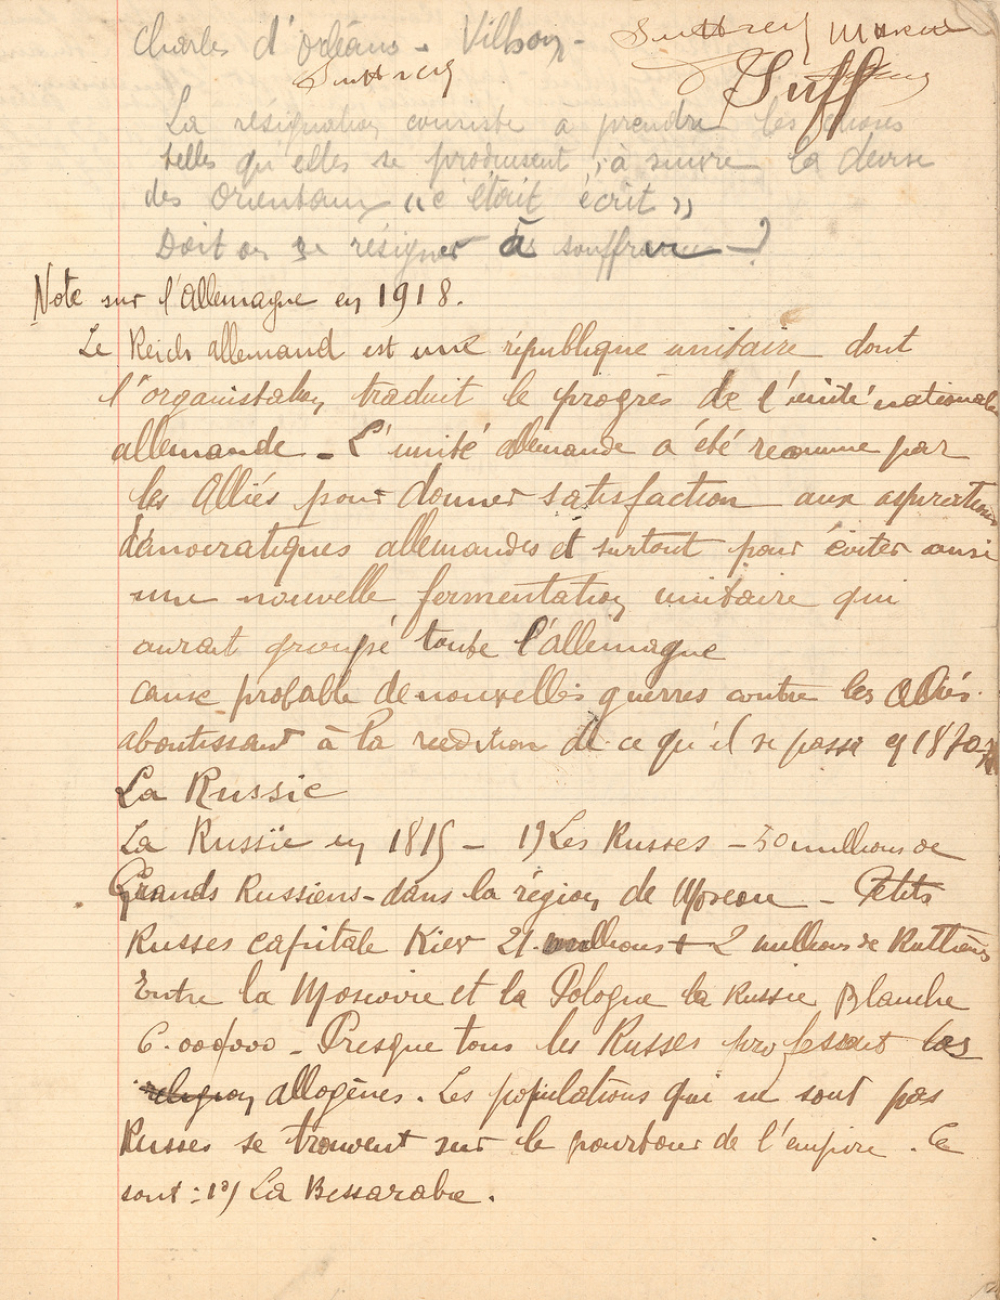 Charles d'Orléans - Villon -
Suttrey Marcu
Suttrey
Suff
La résignation consiste a prendre les choses
telles qu'elles se produisent ; à suivre la devise
des Orientaux « c'était écrit »
Doit on se résigner à souffrir ?
Note sur l'Allemagne en 1918.
Le Reich allemand est une république unitaire dont
l'organisation traduit le progrès de l'unité nationale
allemande - L'unité allemande a été reconnue par
les Alliés pour donner satisfaction aux aspirations
démocratiques allemandes et surtout pour éviter ainsi
une nouvelle fermentation unitaire qui
aurait groupé toute l'allemagne
cause probable de nouvelles guerres contre les Alliés.
aboutissant à la réédition de ce qu'il se passa en 1870
La Russie
La Russie en 1815 - 1) Les Russes - 50 millions de
Grands Russiens - dans la région de Moscou - Petits
Russes capitale Kiev 21 millions + 2 millions de Ruthènes
Entre la Moscovie et la Pologne la Russie Blanche
6.000000 - Presque tous les Russes professent las
religion allogènes. Les populations qui ne sont pas
Russes se trouvent sur le pourtour de l'empire. Ce
sont : 1°) La Bessarabie.